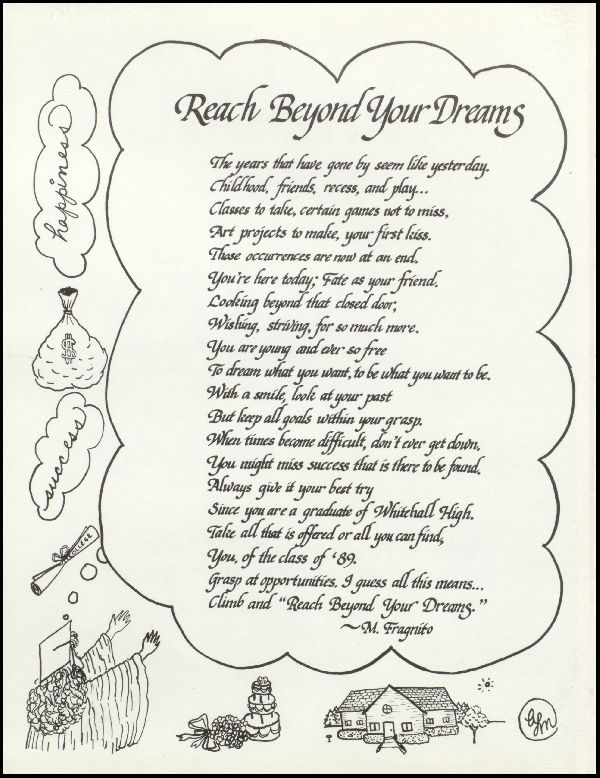 Reach Beyond Your Dreams
The years that have gone by seem like yesterday.
Childhood, friends, recess, and play...
Classes to take, certain games not to miss,
Art projects to make, your first kiss.
Those occurrences are now at an end.
You're here today; Fate as your friend.
Looking beyond that closed door,
Wishing, striving, for so much more.
You are young and ever so free
To dream what you want, to be what you want to be.
With a smile, look at your past
But keep all goals within your grasp.
When times become difficult, don't ever get down,
You might miss success that is there to be found.
Always give it your best try
Since you are a graduate of Whitehall High.
Take all that is offered or all you can find,
You, of the class of '89.
Grasp at opportunities. I guess all this means...
Climb and "Reach Beyond Your Dreams."
~M. Fragnito
happiness
$
success